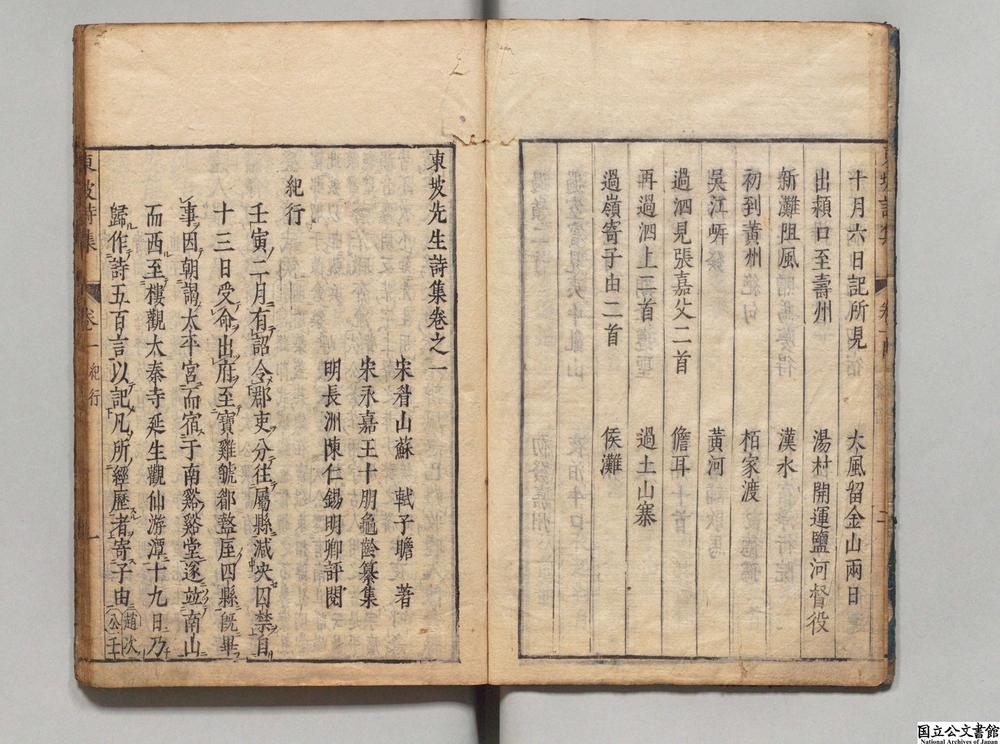 十月六日記所見 大風留金山兩日
出潁口至壽州 湯村開運鹽河督役
新灘阻風 漢水
初到黃州 栢家渡
吳江岸 黃河
過泗見張嘉父二首 儋耳
再過泗上二首 過土山寨
過嶺寄子由二首 俟灘
東坡先生詩集卷之一
宋眉山蘇 軾子瞻 著
宋永嘉王十朋龜齡纂集
明長洲陳仁錫明卿評閱
紀行
壬寅二月有詔令郡吏分往屬縣減决囚禁自
十三日受命出府至寶雞虢郿盩厔四縣旣畢
事因朝謁太平宮而宿于南谿谿堂遂並南山
而西至樓觀大秦寺延生觀仙游潭十九日乃
歸作詩五百言以記凡所經歷者寄子由 趙次公
東坡詩集 卷一 紀行 一
国立公文書館
National Archives of Japan